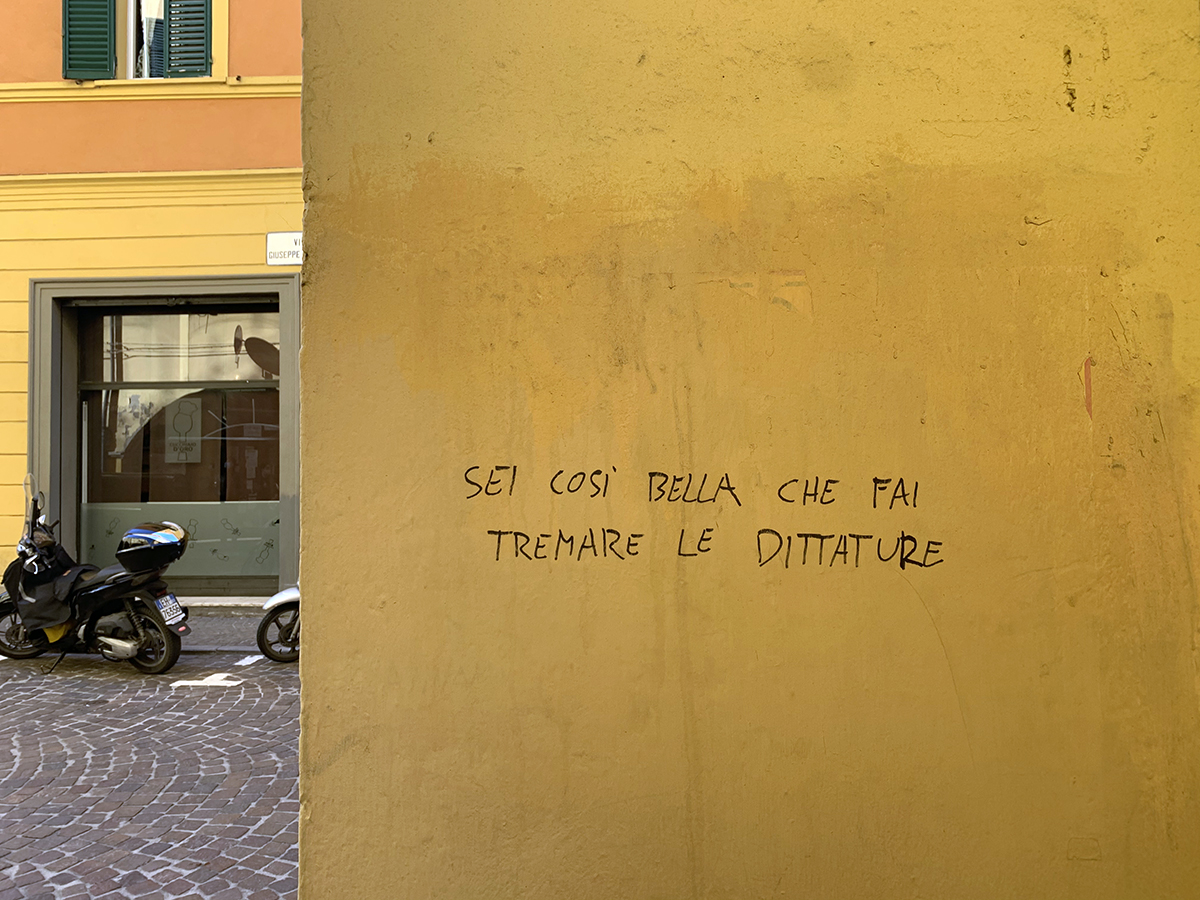 VI
GIUSEPPE
SEI COSÌ BELLA CHE FAI
TREMARE LE DITTATURE